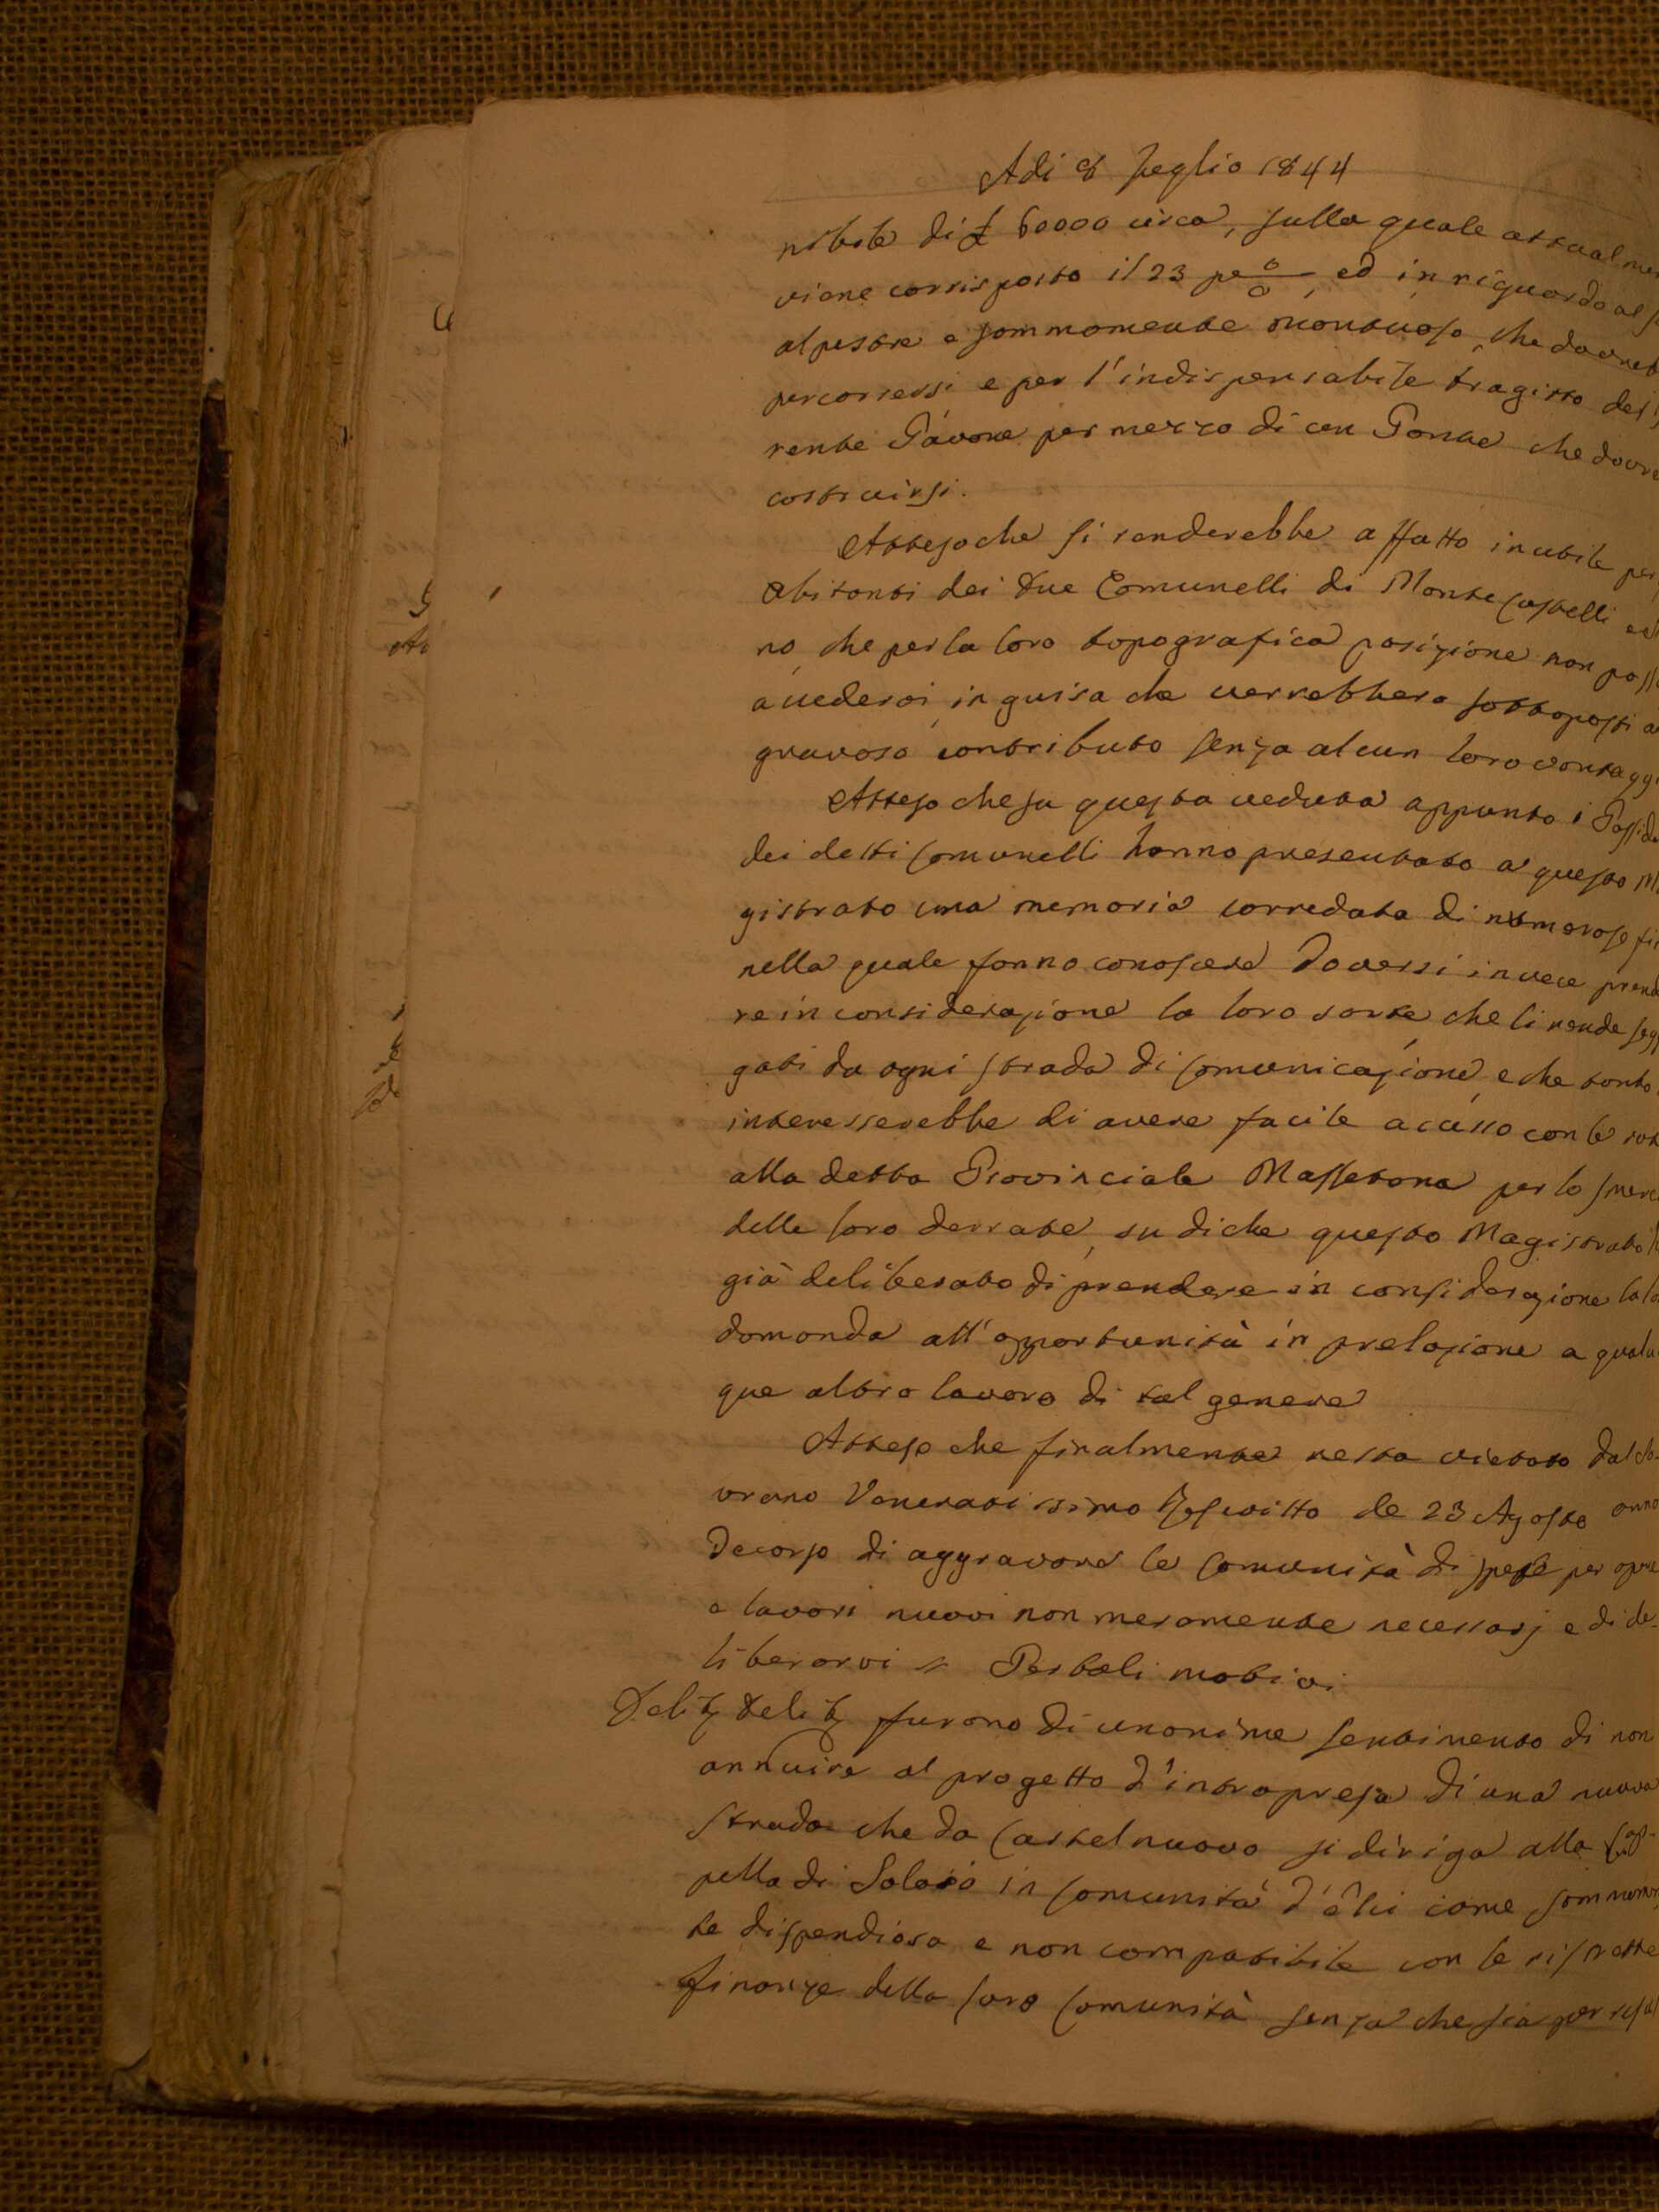 Adi 8 Luglio 1844
nibile di £ 60000 circa, sulla quale attualmen
viene corrisposto il 23 per %, ed in riguardo al
alpestre e sommamente montuoso che dovreb
percorrersi e per l'indispensabile tragitto del
rente Pavone per mezzo di un Ponte che dovre
costruirsi.
Attesoche si renderebbe affatto inutile per
Abitanti dei due Comunelli di Montecastelli ed
no che per la loro topografica posizione non poss
accedervi in guisa che verrebbero sottoposti a
gravoso contributo senza alcun loro vantaggi
Atteso che su questa veduta appunto i Posside
dei detti Comunelli hanno presentato a questo M
gistrato una memoria corredata di numerose fir
nella quale fanno conoscere Doversi invece prend
re in considerazione la loro sorte che li rende seg
gati da ogni strada di Comunicazione, e che tanto
interesserebbe di avere facile accesso con le rot
alla detta Provinciale Massetana per lo smerc
delle loro derrate, su di che questo Magistrato
già deliberato di prendere in considerazione la lo
domanda all'opportunità in prelazione a qualu
que altro lavoro di tal genere
Atteso che finalmente resta vietato dal So-
vrano Veneratissimo Rescritto de 23 Agosto anno
Decorso di aggravare le Comunità di spese per opere
e lavori nuovi non meramente necessarj e di de-
liberarvi = Per tali motivi
Delib. Delib. furono di unanime sentimento di non
annuire al progetto d'intrapresa di una nuova
strada che da Castelnuovo si diriga alla Cap-
pella di Solaio in Comunità d'Elci come sommamen
te dispendiosa e non compatibile con le ristrette
finanze della loro Comunità senza che sia per